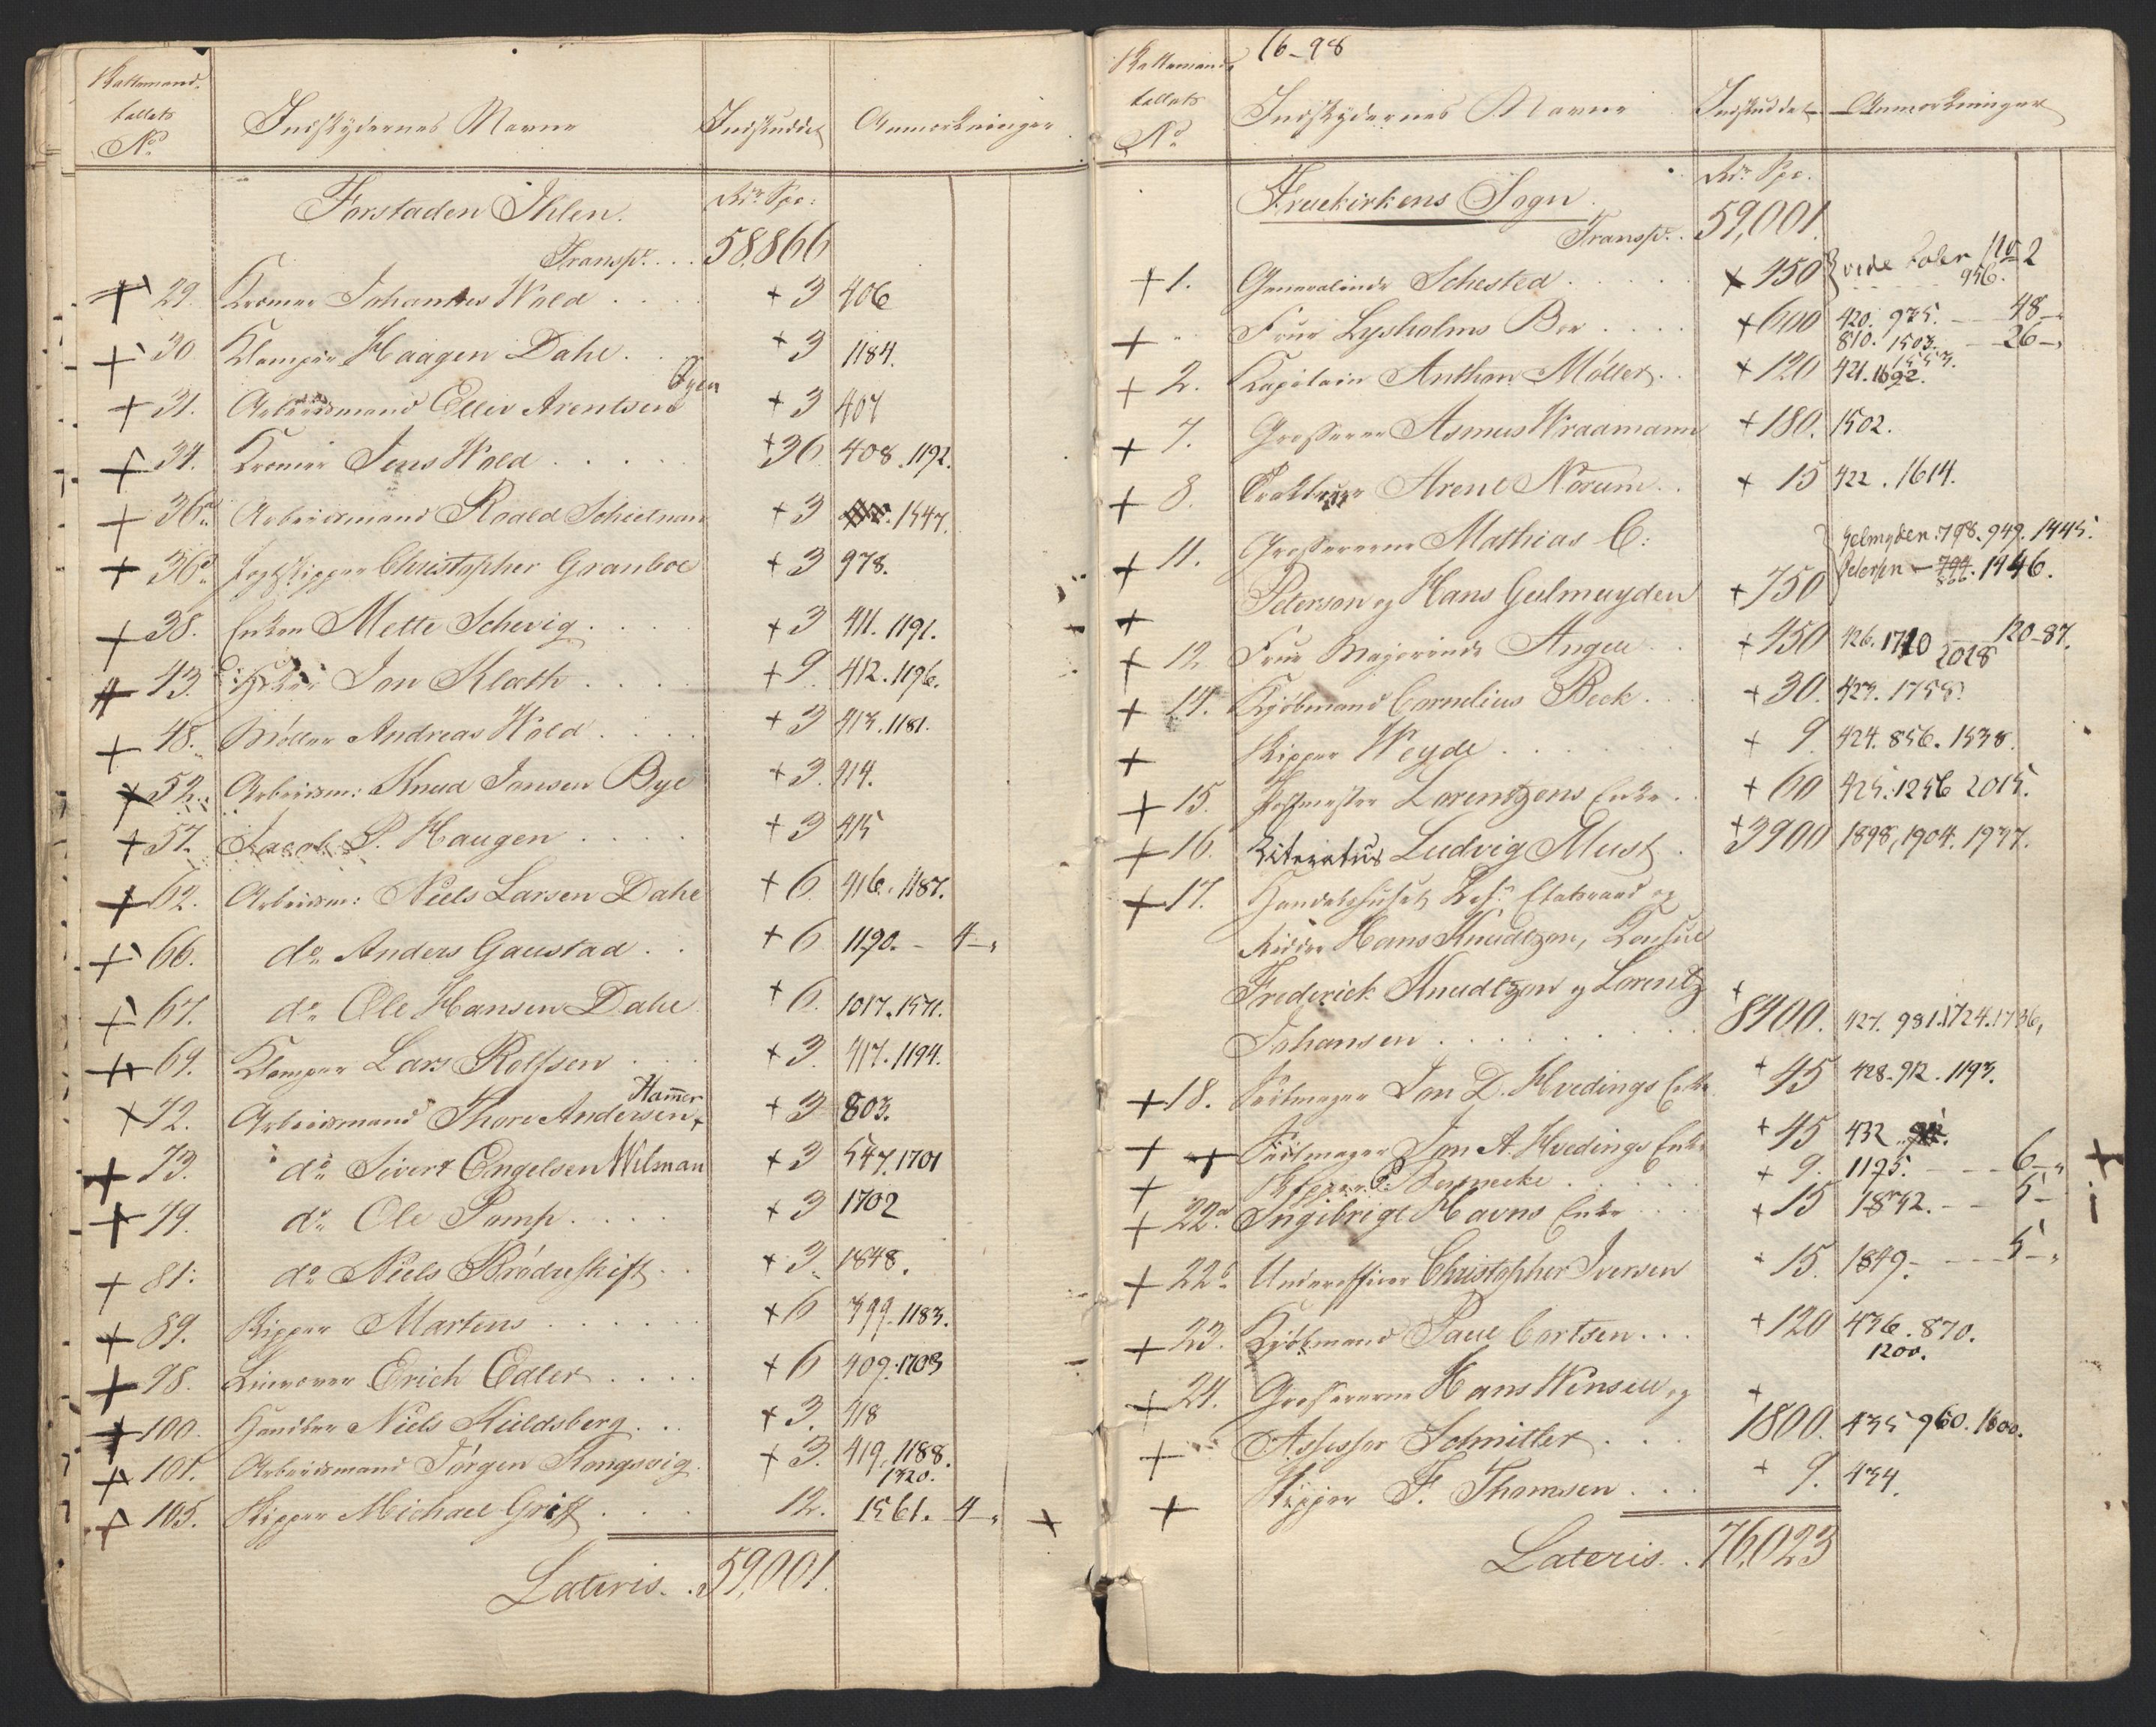 Skattemand-
tallets
No
Indskydernes Navne
Indskuddet
Anmærkninger
Forstaden Ihlen.
Rdr Spe:
Transpt. . . 58,866
29. Kræmer Johannes Wold . . . + 3 406
30 Klamper Haagen Dahl . . + 3 1184.
31. Arbeidsmand Ellev Arentsen Øyen + 3 407
34. Kræmer Jens Wold . . . . . + 36 408. 1192.
36c Arbeidsmand Roald Schielnan + 3 1547.
36d Jegtskipper Christopher Granboe + 3 978.
38. Enken Mette Schevig . . . . + 3 411. 1191.
43. Jon Klæth . . . . + 9. 412. 1196.
48. Møller Andreas Wold . . . . + 3 413. 1181.
52. Arbeidsm: Knud Jansen Bye + 3. 414.
57. Jacob P. Haugen . . . . + 3 415
62. Arbeidsm: Niels Larsen Dahl + 6. 416. 1187.
66. do Anders Gaustad . . + 6 1190. - 4 -"
67. do Ole Hansen Dahl + 6. 1017. 1571.
69. Klamper Lars Rolfsen . . . + 3. 417. 1194.
72. Arbeidsmand Thore Andersen Ham̅er + 3 803.
73. do Sivert Engelsen Wilman + 3 547. 1701
79. do Ole Pomp . . . . + 3 1702
81. do Niels Brödreskift . . + 3. 1848.
89. Skipper Martens . . . . . . + 6 399. 1183.
98. Linvæver Erich Edler . . . . + 6 409. 1703
100. Handler Niels Kieldsberg . . + 3. 418
101. Arbeidsmand Jörgen Kongsvig. + 3. 419. 1188.
1320.
105. Skipper Michael Griff . . . . 12. 1561. 4 -" +
Lateris. . 59,001.
16-98
Skattemand-
tallets
No
Indskydernes Navne
Indskuddet
Anmærkninger
Fruekirkens Sogn.
Rdr Spe.
Transpt. . 59,001.
+ 1. Generalinde Schested . . . . . + 450 vide 2
956.
+ " Frue Lysholms Boe . . . . + 600 420. 975. - 48 -"
810. 1503. - 26 -"
+ 2. Kapitain Anthon Möller . . + 120 421. 1692.
1553.
+ 7. Grosserer Asmus Wraamann + 180. 1502.
+ 8. Arent Norum . . + 15 422. 1614.
+ 11. Grossererne Mathias C: Gelmyden. 798. 949. 1445.
+ Peterson og Hans Gulmeyden + 750 Petersen - 794. 1446.
866.
+ 12. Frue Majorinde Angell . . + 450 426. 1710 - 120 - 87.
2028
+ 14. Kjöbmand Cornelius Beck . . . + 30. 423. 1758.
+ Skipper Weyde . . . . . . + 9. 424. 856. 1538.
+ 15. Postmester Lorentzens Enke . . + 60 425. 1256 2015.
+ 16. Literatus Ludvig Must . + 3900 1898, 1904. 1937.
+ 17. Handelshuset Etatsraad og
Ridder Hans Knudtzon, Konsul
Frederick Knudtzon og Lorentz
Johansen . . . . . . . + 8400. 427. 981. 1724. 1736,
+ 18. Jon D. Hvedings Enke + 45 428. 912. 1193.
+ Jon A. Hvedings Enke + 45 432.
+ Skipper C: . . . . . + 9. 1195. - - - 6 -" +
+ 22a Ingebrigt Havns Enke . . . + 15 1842. - - 5 -
+ 22b Underofficer Christopher Iversen + 15. 1849. - - - 5 -"
+ 23. Kjöbmand Paul Cortsen . . . + 120 436. 870.
1200.
+ 24. Grossererne Hans Wensell og
+ Assessor Schnitler . . . + 1800. 435 960. 1600.
+ Skipper F. Thomsen . . . + 9. 434.
Lateris. . 76,023